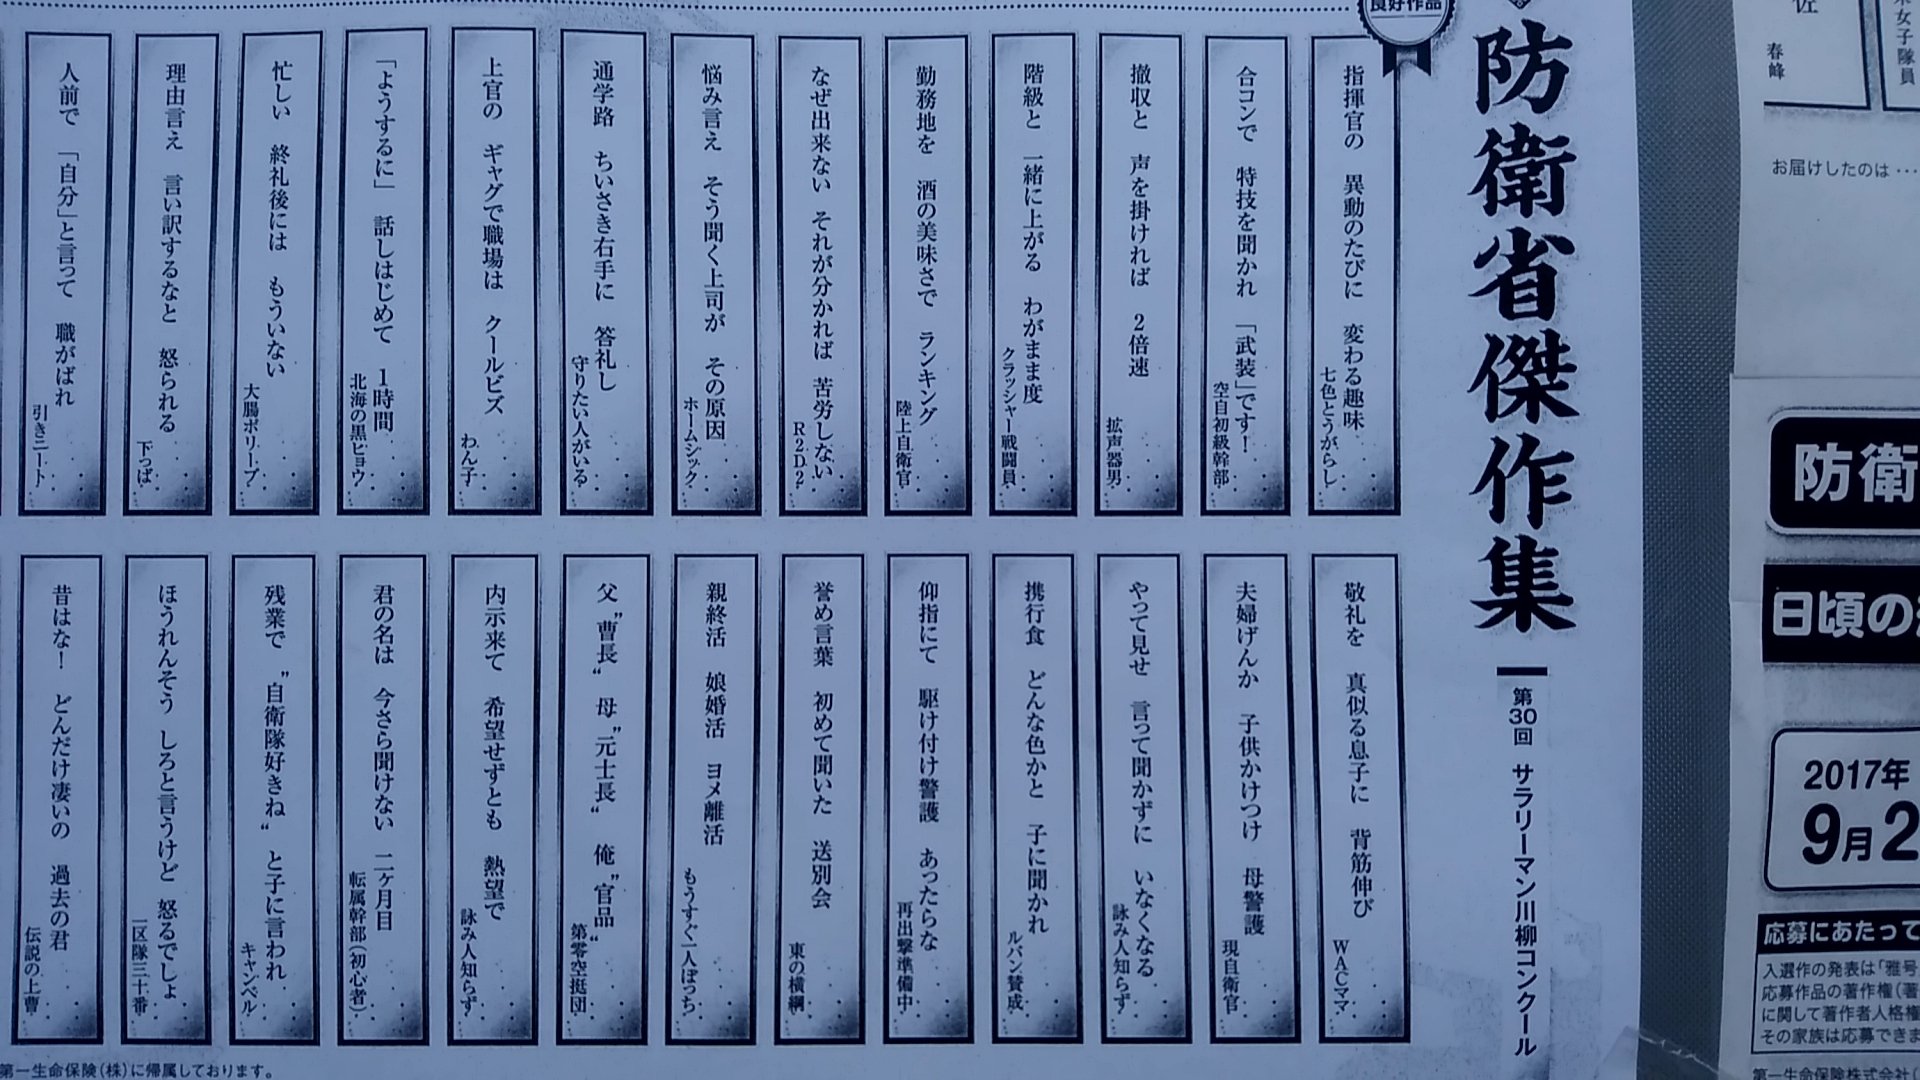 良好作品
防衛省傑作集
第30回 サラリーマン川柳コンクール
指揮官の 異動のたびに 変わる趣味
七色とうがらし
合コンで 特技を聞かれ 「武装」です!
空自初級幹部
撤収と 声を掛ければ 2倍速
拡声器男
階級と 一緒に上がる わがまま度
クラッシャー戦闘員
勤務地を 酒の美味さで ランキング
陸上自衛官
なぜ出来ない それが分かれば 苦労しない
R2D2
悩み言え そう聞く上司が その原因
ホームシック
通学路 ちいさき右手に 答礼し
守りたい人がいる
上官の ギャグで職場は クールビズ
わん子
「ようするに」 話しはじめて 1時間
北海の黒ヒョウ
忙しい 終礼後には もういない
大腸ポリープ
理由言え 言い訳するなと 怒られる
下っぱ
人前で 「自分」と言って 職がばれ
引きニート
敬礼を 真似る息子に 背筋伸び
WACママ
夫婦げんか 子供かけつけ 母警護
現自衛官
やって見せ 言って聞かずに いなくなる
詠み人知らず
携行食 どんな色かと 子に聞かれ
ルパン賛成
仰指にて 駆け付け警護 あったらな
再出撃準備中
誉め言葉 初めて聞いた 送別会
東の横綱
親終活 娘婚活 ヨメ離活
もうすぐ一人ぼっち
父“曹長” 母“元士長” 俺“官品”
第零空挺団
内示来て 希望せずとも 熱望で
詠み人知らず
君の名は 今さら聞けない 二ケ月目
転属幹部(初心者)
残業で “自衛隊好きね” と子に言われ
キャンベル
ほうれんそう しろと言うけど 怒るでしょ
一区隊三十番
昔はな! どんだけ凄いの 過去の君
伝説の上曹
第一生命保険(株)に帰属しております。
佐
春峰
女子隊員
お届けしたのは…
防衛
日頃の
2017年
9月2
応募にあたって
入選作の発表は「雅号
応募作品の著作権(著
に関して著作者人格権
その家族は応募できま
第一生命保険株式会社(